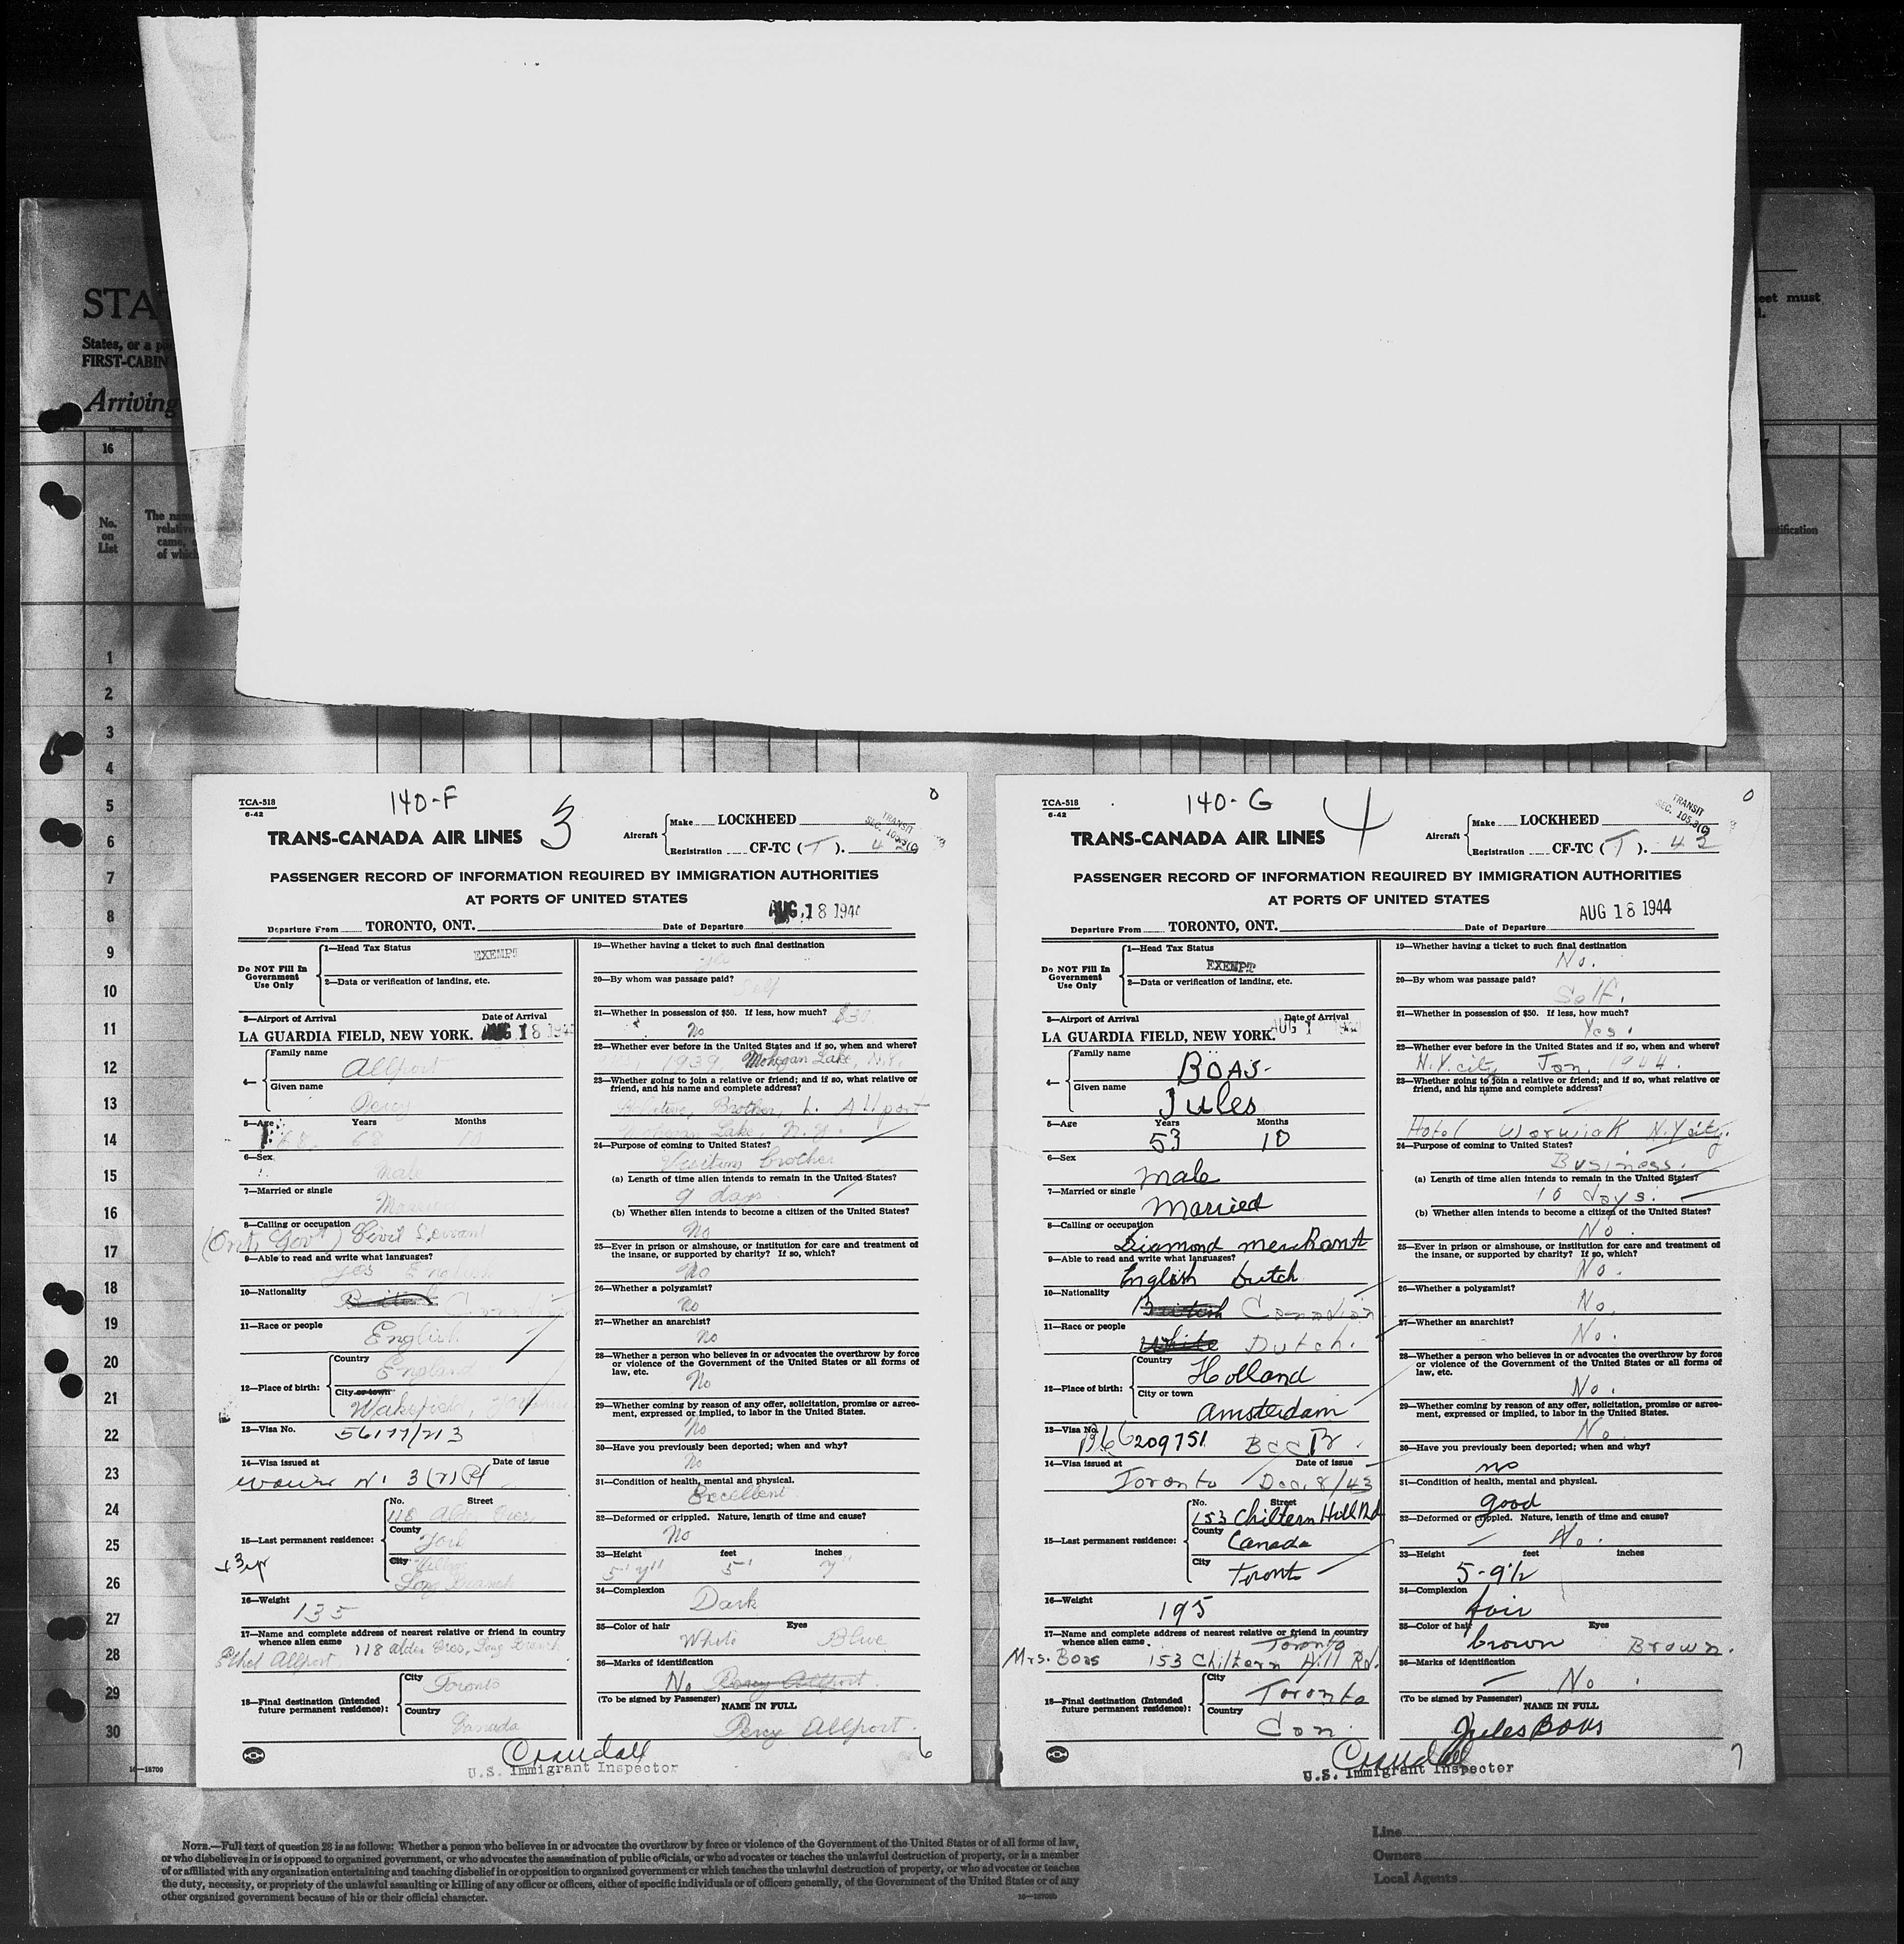 STA
States, or a
FIRST-CABIN
Arriving
eet must
16
No.
on
List
The
relative
came,
of which
1
2
3
4
5
6
7
8
9
10
11
12
13
14
15
16
17
18
19
20
21
22
23
24
25
26
27
28
29
30
16—18709
TCA-518
6-42
140-F
3
0
TRANS-CANADA AIR LINES
Aircraft
Make LOCKHEED
Registration CF-TC (T).
TRANSIT
PASSENGER RECORD OF INFORMATION REQUIRED BY IMMIGRATION AUTHORITIES
AT PORTS OF UNITED STATES
AUG 18 1944
Departure From TORONTO, ONT. Date of Departure
Do NOT Fill In
Government
Use Only
1—Head Tax Status
EXEMPT
2—Data or verification of landing, etc.
3—Airport of Arrival Date of Arrival
LA GUARDIA FIELD, NEW YORK. AUG 18 1944
4—
Family name
Allport
Given name
Percy
5—Age Years Months
68 10
6—Sex
Male
7—Married or single
Married
8—Calling or occupation
(Ont. Gov't) Civil Servant
9—Able to read and write what languages?
Yes English
10—Nationality
British Canadian
11—Race or people
English
12—Place of birth:
Country
England
City or town
Wakefield,
13—Visa No.
56177/213
14—Visa issued at Date of issue
15—Last permanent residence:
No. Street
118 Alder Cres
County
York
City
Village
Long Branch
16—Weight
135
17—Name and complete address of nearest relative or friend in country
whence alien came
Ethel Allport 118 Alder Cres, Long Branch
18—Final destination (Intended
future permanent residence):
City
Toronto
Country
Canada
19—Whether having a ticket to such final destination
20—By whom was passage paid?
Self
21—Whether in possession of $50. If less, how much? $30
No
22—Whether ever before in the United States and if so, when and where?
1939 Mohegan Lake, N.Y.
23—Whether going to join a relative or friend; and if so, what relative or
friend, and his name and complete address?
Relative, Brother, L. Allport
Mohegan Lake, N.Y.
24—Purpose of coming to United States?
Visiting brother
(a) Length of time alien intends to remain in the United States?
9 days
(b) Whether alien intends to become a citizen of the United States?
No
25—Ever in prison or almshouse, or institution for care and treatment of
the insane, or supported by charity? If so, which?
No
26—Whether a polygamist?
No
27—Whether an anarchist?
No
28—Whether a person who believes in or advocates the overthrow by force
or violence of the Government of the United States or all forms of
law, etc.
No
29—Whether coming by reason of any offer, solicitation, promise or agree-
ment, expressed or implied, to labor in the United States.
No
30—Have you previously been deported; when and why?
No
31—Condition of health, mental and physical.
Excellent
32—Deformed or crippled. Nature, length of time and cause?
No
33—Height feet inches
5' 7" 5' 7"
34—Complexion
Dark
35—Color of hair Eyes
White Blue
36—Marks of identification
No Percy Allport
(To be signed by Passenger) NAME IN FULL
Percy Allport.
Crandall
U.S. Immigrant Inspector
6
TCA-518
6-42
140-G
4
0
TRANS-CANADA AIR LINES
Aircraft
Make LOCKHEED
Registration CF-TC (T). 43
TRANSIT
PASSENGER RECORD OF INFORMATION REQUIRED BY IMMIGRATION AUTHORITIES
AT PORTS OF UNITED STATES
AUG 18 1944
Departure From TORONTO, ONT. Date of Departure
Do NOT Fill In
Government
Use Only
1—Head Tax Status
EXEMPT
2—Data or verification of landing, etc.
3—Airport of Arrival Date of Arrival
LA GUARDIA FIELD, NEW YORK. AUG 1
4—
Family name
BOAS-
Given name
Jules
5—Age Years Months
53 10
6—Sex
Male
7—Married or single
Married
8—Calling or occupation
Diamond merchant
9—Able to read and write what languages?
English Dutch
10—Nationality
British Canadian
11—Race or people
White Dutch.
12—Place of birth:
Country
Holland
City or town
Amsterdam
13—Visa No.
209751
14—Visa issued at Date of issue
Toronto Dec. 8/43
15—Last permanent residence:
No. Street
153 Chiltern Hill Rd
County
Canada
City
Toronto
16—Weight
195
17—Name and complete address of nearest relative or friend in country
whence alien came. Toronto
Mrs. Boas 153 Chiltern Hill Rd.
18—Final destination (Intended
future permanent residence):
City
Toronto
Country
Can.
19—Whether having a ticket to such final destination
No.
20—By whom was passage paid?
Self.
21—Whether in possession of $50. If less, how much?
Yes.
22—Whether ever before in the United States and if so, when and where?
N.Y. city Jan. 1944.
23—Whether going to join a relative or friend; and if so, what relative or
friend, and his name and complete address?
Hotel Warwick N.Y city.
24—Purpose of coming to United States?
Business.
(a) Length of time alien intends to remain in the United States?
10 days.
(b) Whether alien intends to become a citizen of the United States?
No.
25—Ever in prison or almshouse, or institution for care and treatment of
the insane, or supported by charity? If so, which?
No.
26—Whether a polygamist?
No.
27—Whether an anarchist?
No.
28—Whether a person who believes in or advocates the overthrow by force
or violence of the Government of the United States or all forms of
law, etc.
No.
29—Whether coming by reason of any offer, solicitation, promise or agree-
ment, expressed or implied, to labor in the United States.
No.
30—Have you previously been deported; when and why?
no
31—Condition of health, mental and physical.
good
32—Deformed or crippled. Nature, length of time and cause?
No.
33—Height feet inches
5-9½
34—Complexion
fair
35—Color of hair Eyes
brown Brown.
36—Marks of identification
No
(To be signed by Passenger) NAME IN FULL
Jules Boas
Crandall
U.S. Immigrant Inspector
7
NOTE.—Full text of question 28 is as follows: Whether a person who believes in or advocates the overthrow by force or violence of the Government of the United States or of all forms of law,
or who disbelieves in or is opposed to organized government, or who advocates the assassination of public officials, or who advocates or teaches the unlawful destruction of property, or is a member
of or affiliated with any organization entertaining and teaching disbelief in or opposition to organized government or which teaches the unlawful destruction of property, or who advocates or teaches
the duty, necessity, or propriety of the unlawful assaulting or killing of any officer or officers, either of specific individuals or of officers generally, of the Government of the United States or of any
other organized government because of his or their official character.
Line
Owners
Local Agents